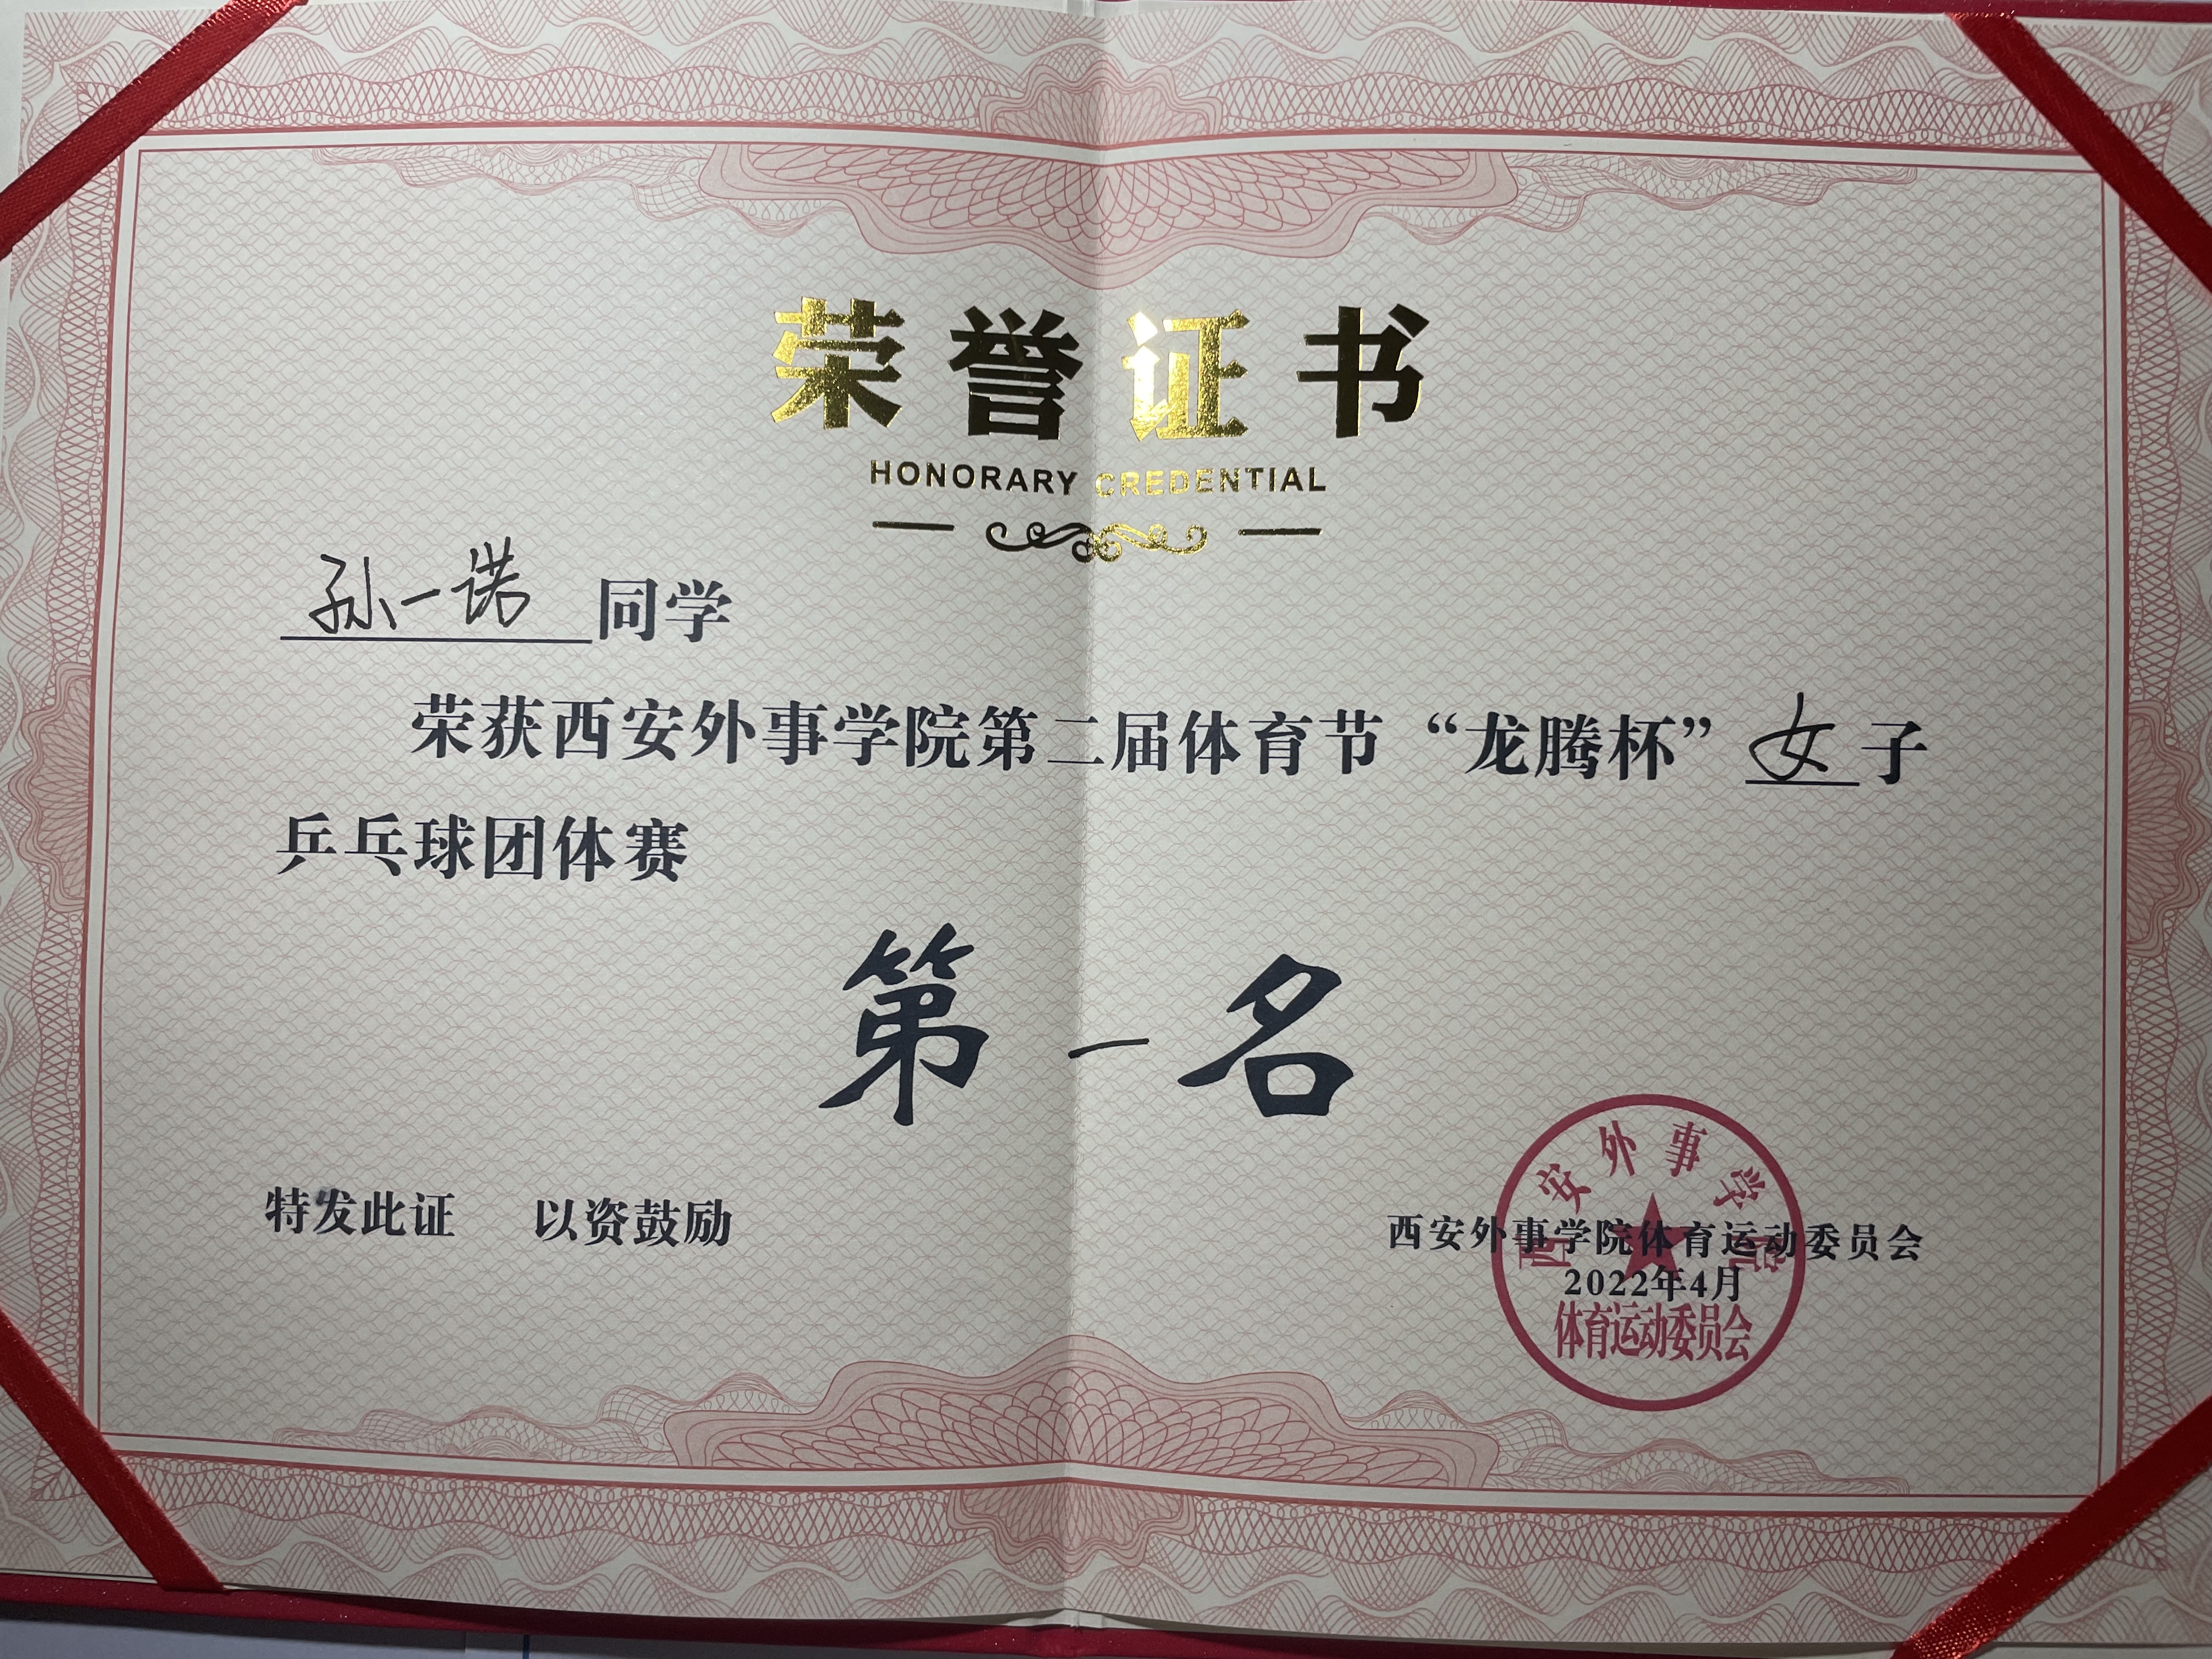 荣誉证书
HONORARY CREDENTIAL
孙一诺同学
荣获西安外事学院第二届体育节“龙腾杯”女子
乒乓球团体赛
第一名
特发此证 以资鼓励
西安外事学院体育运动委员会
2022年4月
西安外事学院
体育运动委员会